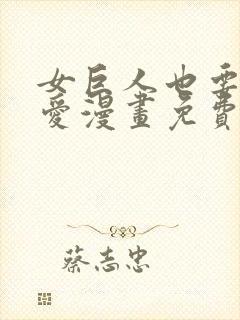 女巨人也要
愛漫畫免費
蔡志忠